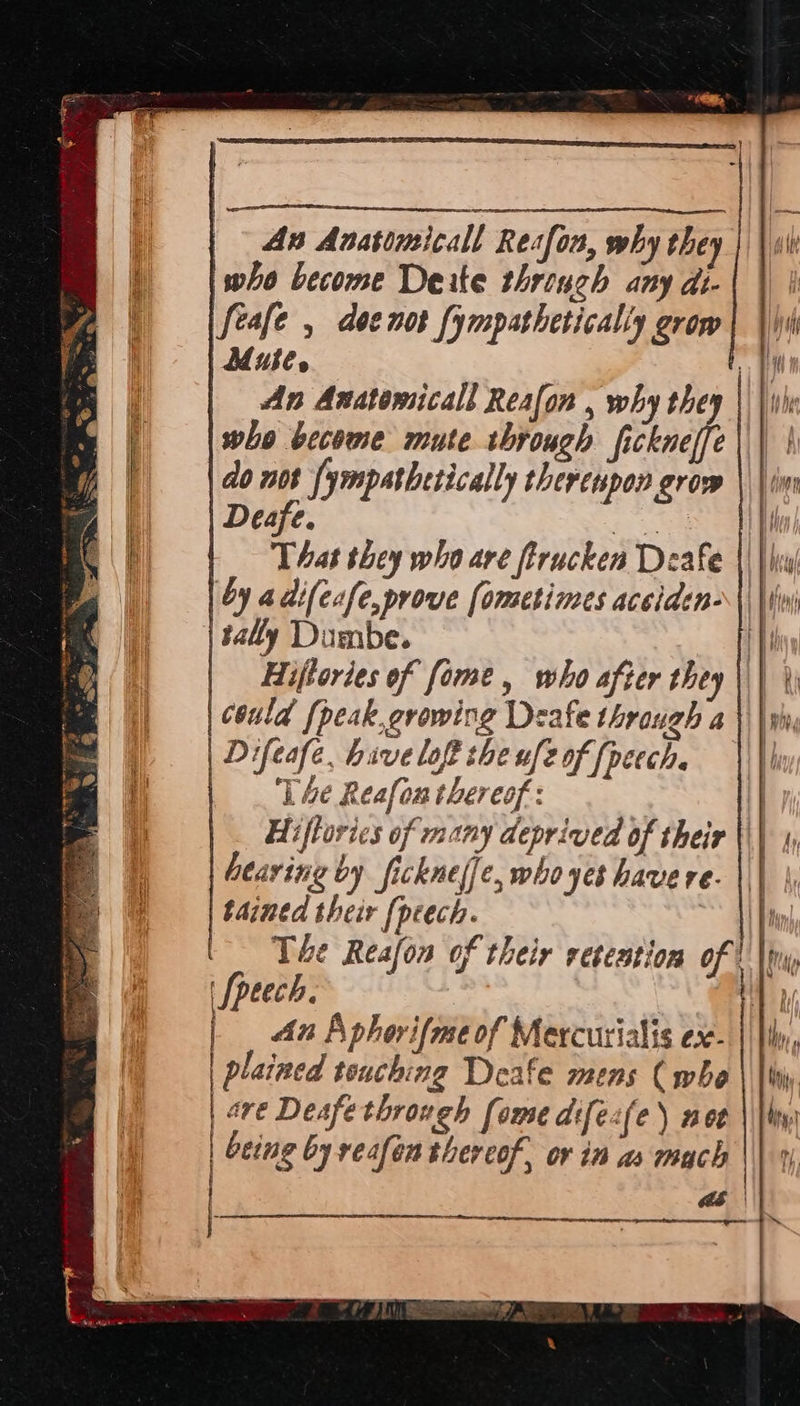 An Anatomicall Reaſon, why they
who become Deafe through any di-
ſeaſe , doe not ſympathetically grow
Mute.
An Anatomicall Reaſon , why they
who become mute through ſickneſſe
do not ſympathetically thereupon grow
Deafe.
That they who are ſtrucken Deafe
by a diſeaſe, prove ſometimes acciden-
tally Dumbe.
Hiſtories of ſome , who after they
could ſpeak, growing Deafe through a
Diſeaſe, have loſt the uſe of ſpeech.
The Reaſon thereof :
Hiſtories of many deprived of their
hearing by ſickneſſe, who yet have re-
tained their ſpeech.
The Reaſon of their retention of
ſpeech.
An Aphoriſme of Mercurialis ex-
plained touching Deafe mens ( who
are Deafe through ſome diſeaſe ) not
being by reaſon thereof, or in as much
as